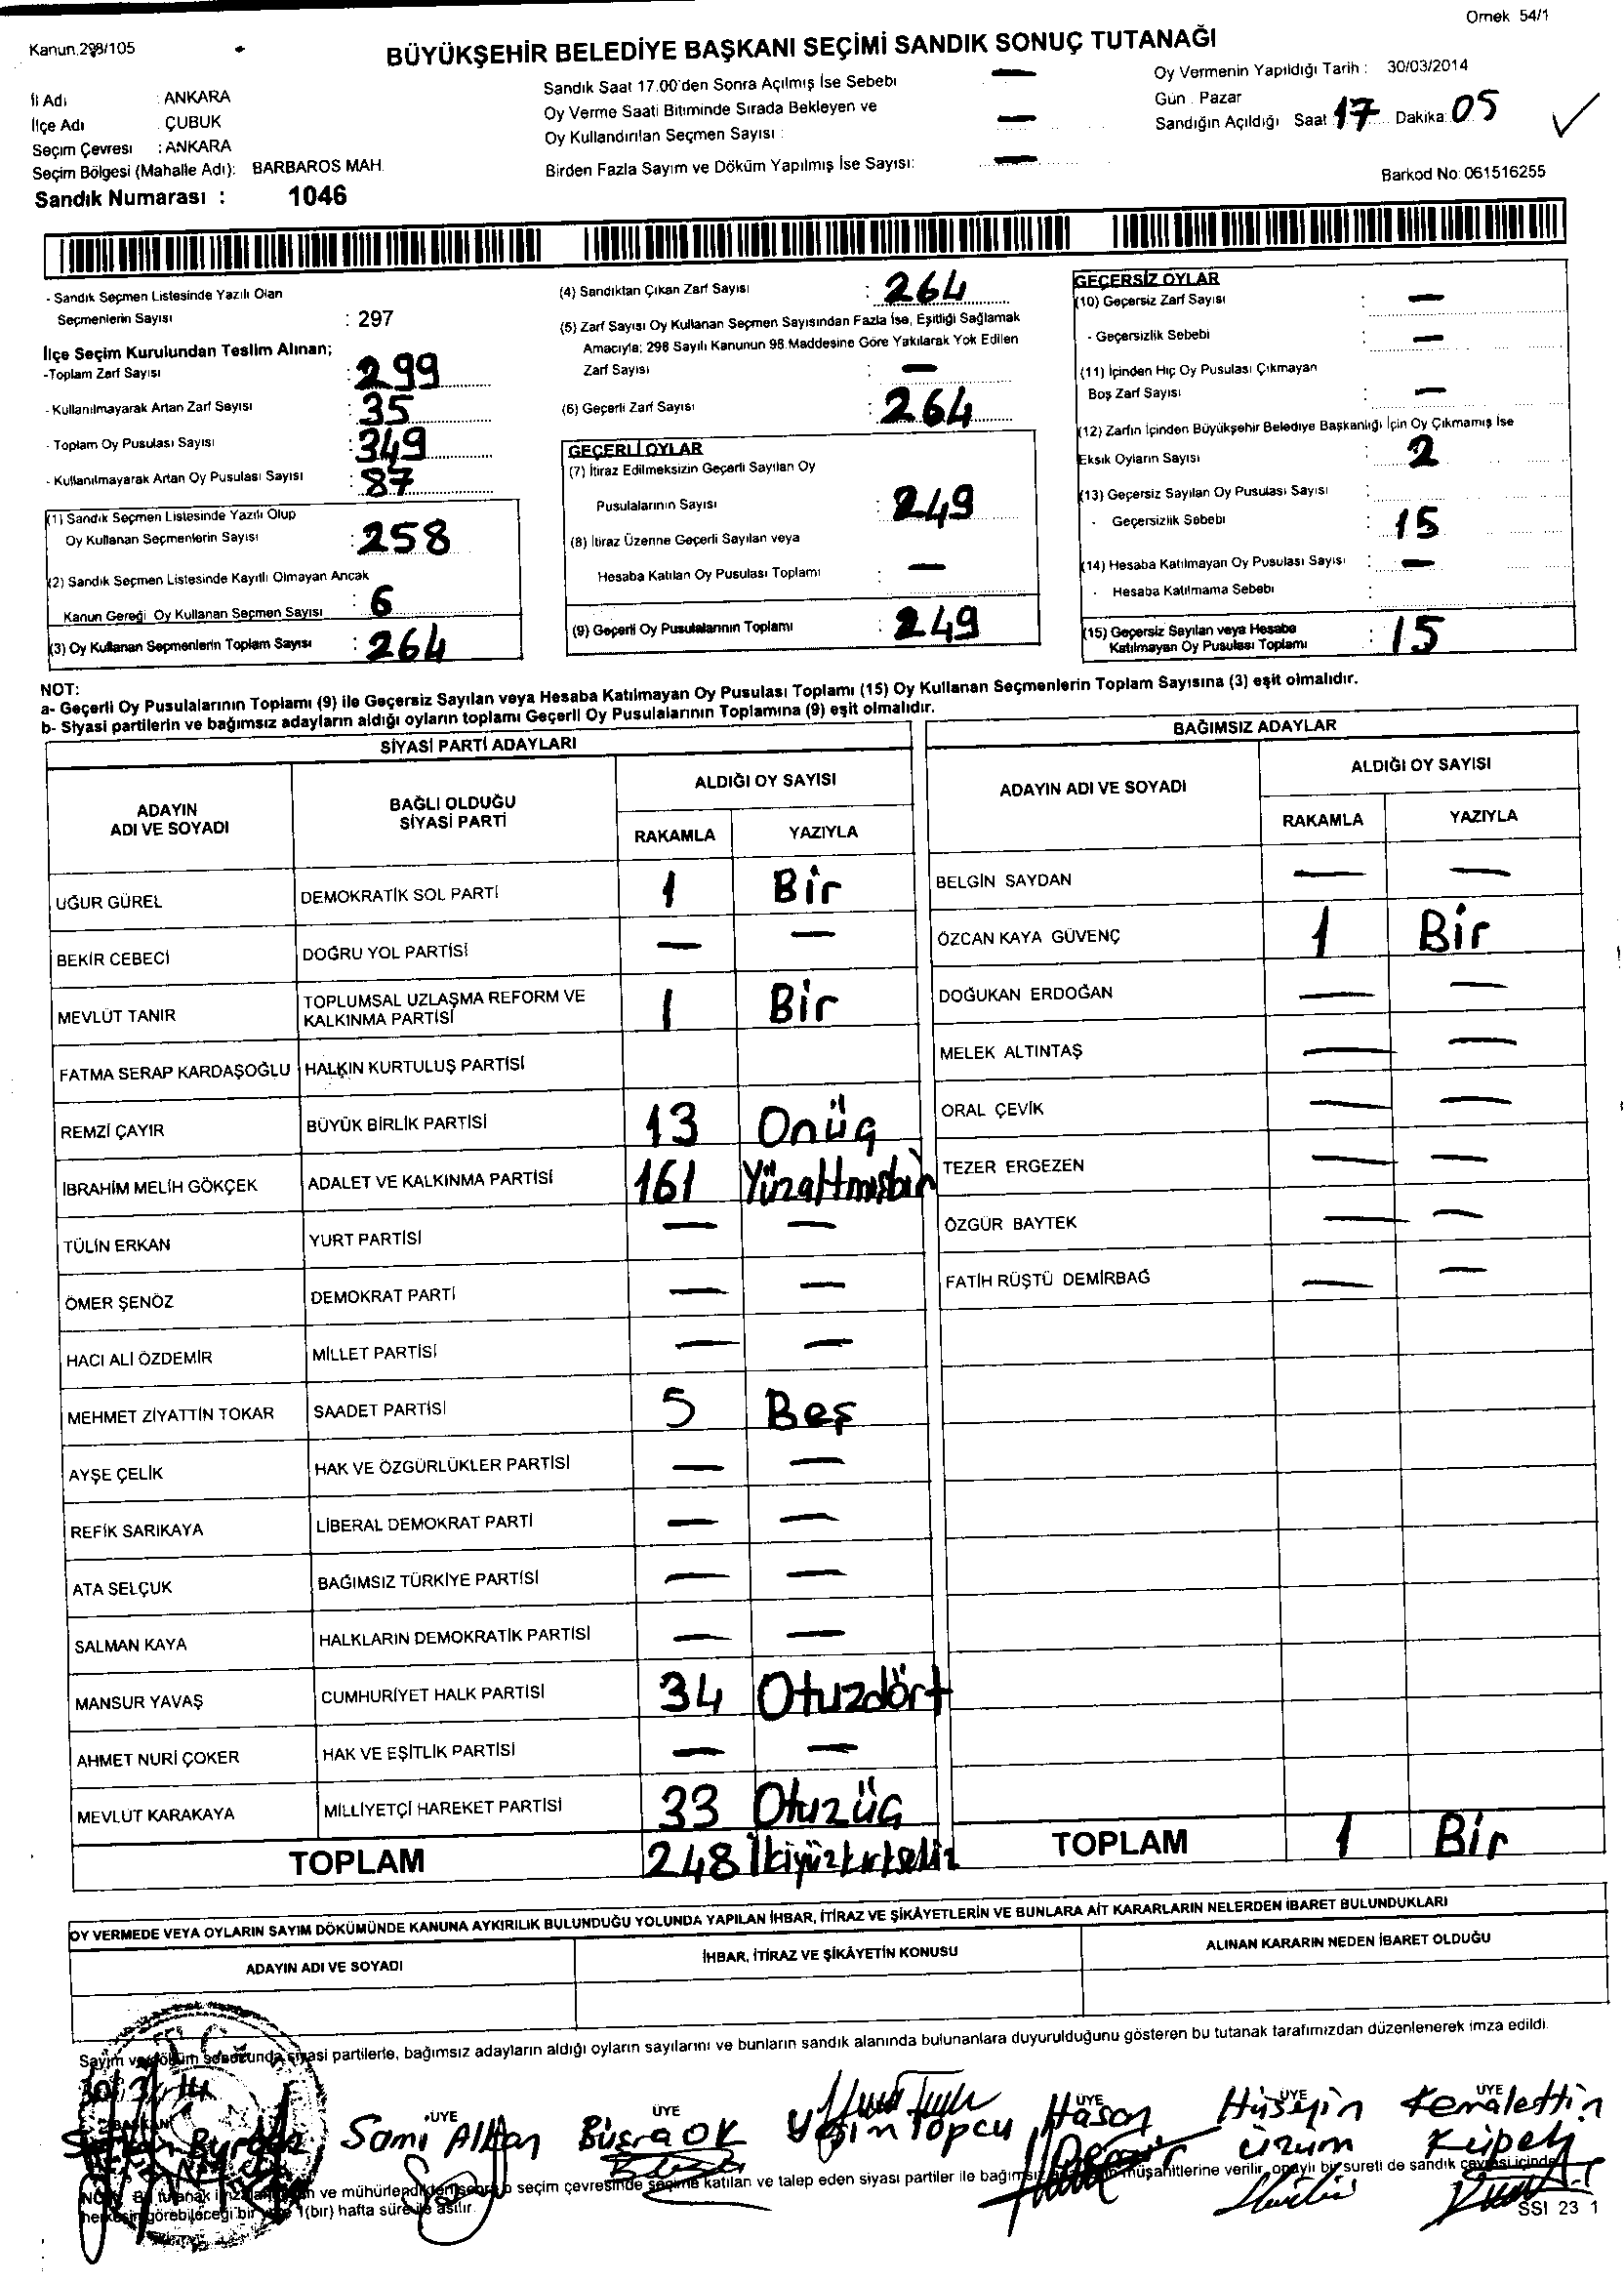 Örnek 54/1
Kanun.298/105
BÜYÜKŞEHİR BELEDİYE BAŞKANI SEÇİMİ SANDIK SONUÇ TUTANAĞI
İl Adı : ANKARA
İlçe Adı : ÇUBUK
Seçim Çevresi : ANKARA
Seçim Bölgesi (Mahalle Adı): BARBAROS MAH.
Sandık Numarası : 1046
Sandık Saat 17.00'den Sonra Açılmış İse Sebebi —
Oy Verme Saati Bitiminde Sırada Bekleyen ve
Oy Kullandırılan Seçmen Sayısı : —
Birden Fazla Sayım ve Döküm Yapılmış İse Sayısı: —
Oy Vermenin Yapıldığı Tarih : 30/03/2014
Gün : Pazar
Sandığın Açıldığı Saat 17 Dakika: 05
Barkod No: 061516255
- Sandık Seçmen Listesinde Yazılı Olan
Seçmenlerin Sayısı : 297
İlçe Seçim Kurulundan Teslim Alınan;
-Toplam Zarf Sayısı : 299
- Kullanılmayarak Artan Zarf Sayısı : 35
- Toplam Oy Pusulası Sayısı : 349
- Kullanılmayarak Artan Oy Pusulası Sayısı : 87
(1) Sandık Seçmen Listesinde Yazılı Olup
Oy Kullanan Seçmenlerin Sayısı : 258
(2) Sandık Seçmen Listesinde Kayıtlı Olmayan Ancak
Kanun Gereği Oy Kullanan Seçmen Sayısı : 6
(3) Oy Kullanan Seçmenlerin Toplam Sayısı : 264
(4) Sandıktan Çıkan Zarf Sayısı : 264
(5) Zarf Sayısı Oy Kullanan Seçmen Sayısından Fazla İse, Eşitliği Sağlamak
Amacıyla; 298 Sayılı Kanunun 98.Maddesine Göre Yakılarak Yok Edilen
Zarf Sayısı : —
(6) Geçerli Zarf Sayısı : 264
GEÇERLİ OYLAR
(7) İtiraz Edilmeksizin Geçerli Sayılan Oy
Pusulalarının Sayısı : 249
(8) İtiraz Üzerine Geçerli Sayılan veya
Hesaba Katılan Oy Pusulası Toplamı : —
(9) Geçerli Oy Pusulalarının Toplamı : 249
GEÇERSİZ OYLAR
(10) Geçersiz Zarf Sayısı : —
- Geçersizlik Sebebi : —
(11) İçinden Hiç Oy Pusulası Çıkmayan
Boş Zarf Sayısı : —
(12) Zarfın İçinden Büyükşehir Belediye Başkanlığı İçin Oy Çıkmamış İse
Eksik Oyların Sayısı : 2
(13) Geçersiz Sayılan Oy Pusulası Sayısı :
- Geçersizlik Sebebi : 15
(14) Hesaba Katılmayan Oy Pusulası Sayısı : —
- Hesaba Katılmama Sebebi :
(15) Geçersiz Sayılan veya Hesaba
Katılmayan Oy Pusulası Toplamı : 15
NOT:
a- Geçerli Oy Pusulalarının Toplamı (9) ile Geçersiz Sayılan veya Hesaba Katılmayan Oy Pusulası Toplamı (15) Oy Kullanan Seçmenlerin Toplam Sayısına (3) eşit olmalıdır.
b- Siyasi partilerin ve bağımsız adayların aldığı oyların toplamı Geçerli Oy Pusulalarının Toplamına (9) eşit olmalıdır.
SİYASİ PARTİ ADAYLARI
ADAYIN ADI VE SOYADI
BAĞLI OLDUĞU SİYASİ PARTİ
ALDIĞI OY SAYISI
RAKAMLA YAZIYLA
UĞUR GÜREL DEMOKRATİK SOL PARTİ 1 Bir
BEKİR CEBECİ DOĞRU YOL PARTİSİ — —
MEVLÜT TANIR TOPLUMSAL UZLAŞMA REFORM VE KALKINMA PARTİSİ 1 Bir
FATMA SERAP KARDAŞOĞLU HALKIN KURTULUŞ PARTİSİ
REMZİ ÇAYIR BÜYÜK BİRLİK PARTİSİ 13 Onüç
İBRAHİM MELİH GÖKÇEK ADALET VE KALKINMA PARTİSİ 161 Yüzaltmışbir
TÜLİN ERKAN YURT PARTİSİ — —
ÖMER ŞENÖZ DEMOKRAT PARTİ — —
HACI ALİ ÖZDEMİR MİLLET PARTİSİ — —
MEHMET ZİYATTİN TOKAR SAADET PARTİSİ 5 Beş
AYŞE ÇELİK HAK VE ÖZGÜRLÜKLER PARTİSİ — —
REFİK SARIKAYA LİBERAL DEMOKRAT PARTİ — —
ATA SELÇUK BAĞIMSIZ TÜRKİYE PARTİSİ — —
SALMAN KAYA HALKLARIN DEMOKRATİK PARTİSİ — —
MANSUR YAVAŞ CUMHURİYET HALK PARTİSİ 34 Otuzdört
AHMET NURİ ÇOKER HAK VE EŞİTLİK PARTİSİ — —
MEVLÜT KARAKAYA MİLLİYETÇİ HAREKET PARTİSİ 33 Otuzüç
TOPLAM 248 İkiyüzkırksekiz
BAĞIMSIZ ADAYLAR
ADAYIN ADI VE SOYADI
ALDIĞI OY SAYISI
RAKAMLA YAZIYLA
BELGİN SAYDAN — —
ÖZCAN KAYA GÜVENÇ 1 Bir
DOĞUKAN ERDOĞAN — —
MELEK ALTINTAŞ — —
ORAL ÇEVİK — —
TEZER ERGEZEN — —
ÖZGÜR BAYTEK — —
FATİH RÜŞTÜ DEMİRBAĞ — —
TOPLAM 1 Bir
OY VERMEDE VEYA OYLARIN SAYIM DÖKÜMÜNDE KANUNA AYKIRILIK BULUNDUĞU YOLUNDA YAPILAN İHBAR, İTİRAZ VE ŞİKÂYETLERİN VE BUNLARA AİT KARARLARIN NELERDEN İBARET BULUNDUKLARI
ADAYIN ADI VE SOYADI İHBAR, İTİRAZ VE ŞİKÂYETİN KONUSU ALINAN KARARIN NEDEN İBARET OLDUĞU
Sayım ve döküm sonucunda siyasi partilerle, bağımsız adayların aldığı oyların sayılarını ve bunların sandık alanında bulunanlara duyurulduğunu gösteren bu tutanak tarafımızdan düzenlenerek imza edildi.
BAŞKAN ÜYE ÜYE ÜYE ÜYE ÜYE
Sami Alkan Büşra OK Yeşim Topcu Hasan Hüseyin Üzüm Kemalettin Küpeli
seçim çevresinde seçime katılan ve talep eden siyasi partiler ile müşahitlerine verilir, onaylı bir sureti de sandık çevresi içinde
herkesin görebileceği bir yere 1(bir) hafta süre ile asılır.
SSI 23 1